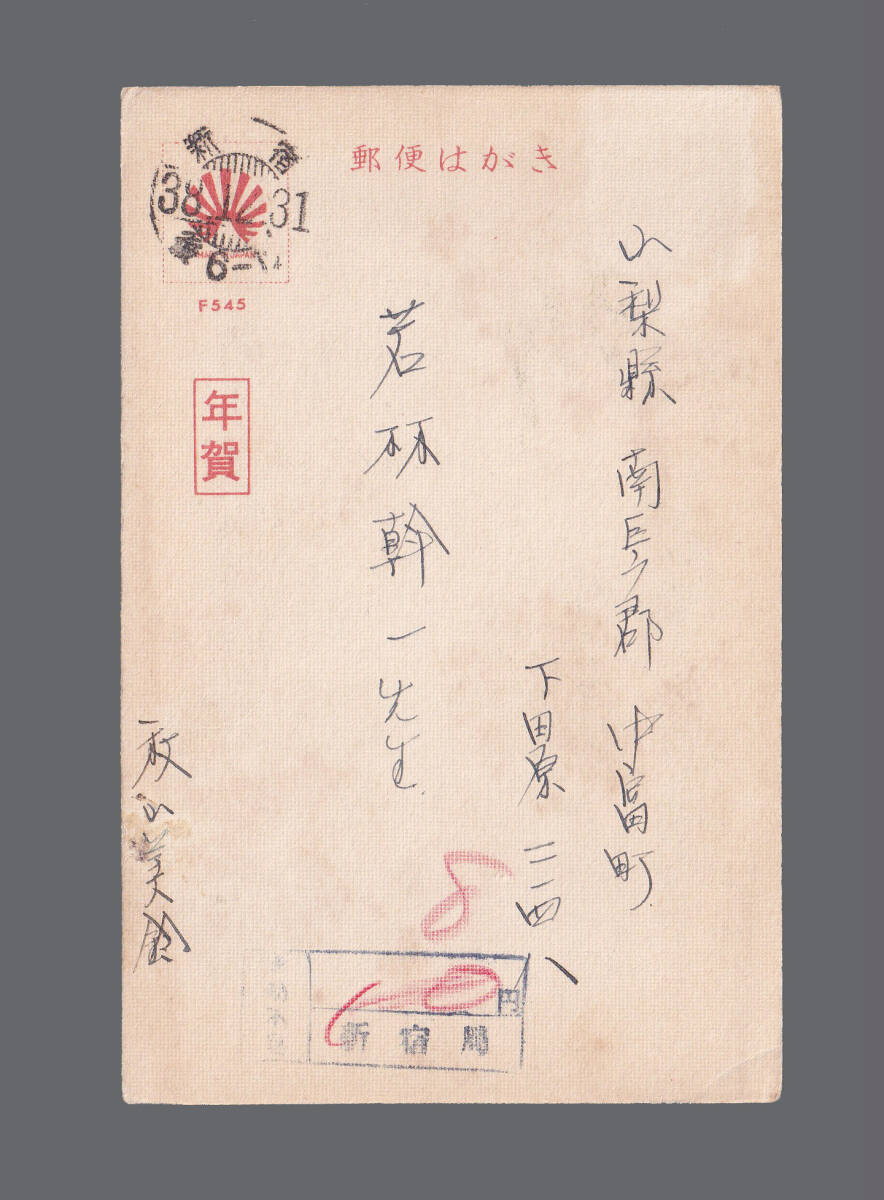 郵便はがき
新宿
38.12.31
F545
年賀
山梨縣 南巨摩郡 中富町
下田原 一二四八
若林幹一先生
秋山美鈴
円
新宿局